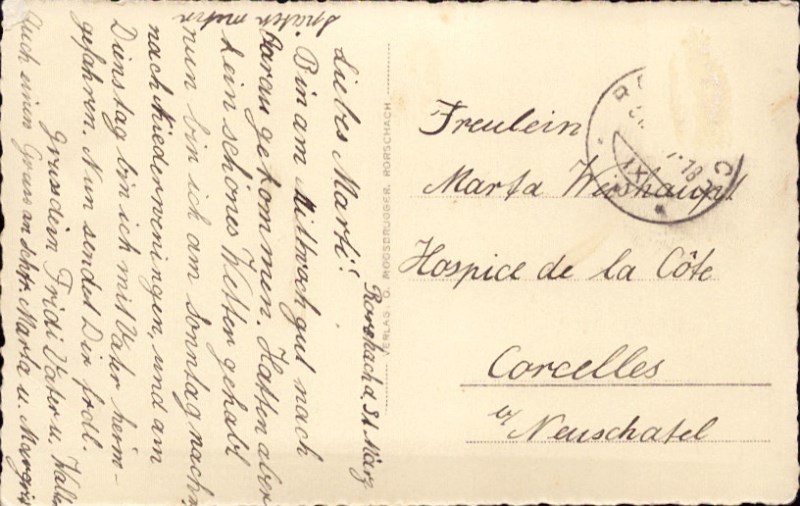 Rorschach d. 31. März
Liebes Marti!
Bin am Mittwoch gut nach
gekommen. Hatten aber
kein schönes Wetter gehabt
nun bin ich am Sonntag nachm
nach Niederweningen, und am
Dienstag bin ich mit Vater heim-
gefahren. Nun sendet Dir frdl.
Gruss dein Fridi Vater u.
Auch einen Gruss an Schw. Marta u. Margrit
VERLAG. O. MOOSBRUGGER, RORSCHACH
Freulein
Marta Weishaupt
Hospice de la Côte
Corcelles
b/ Neuschatel